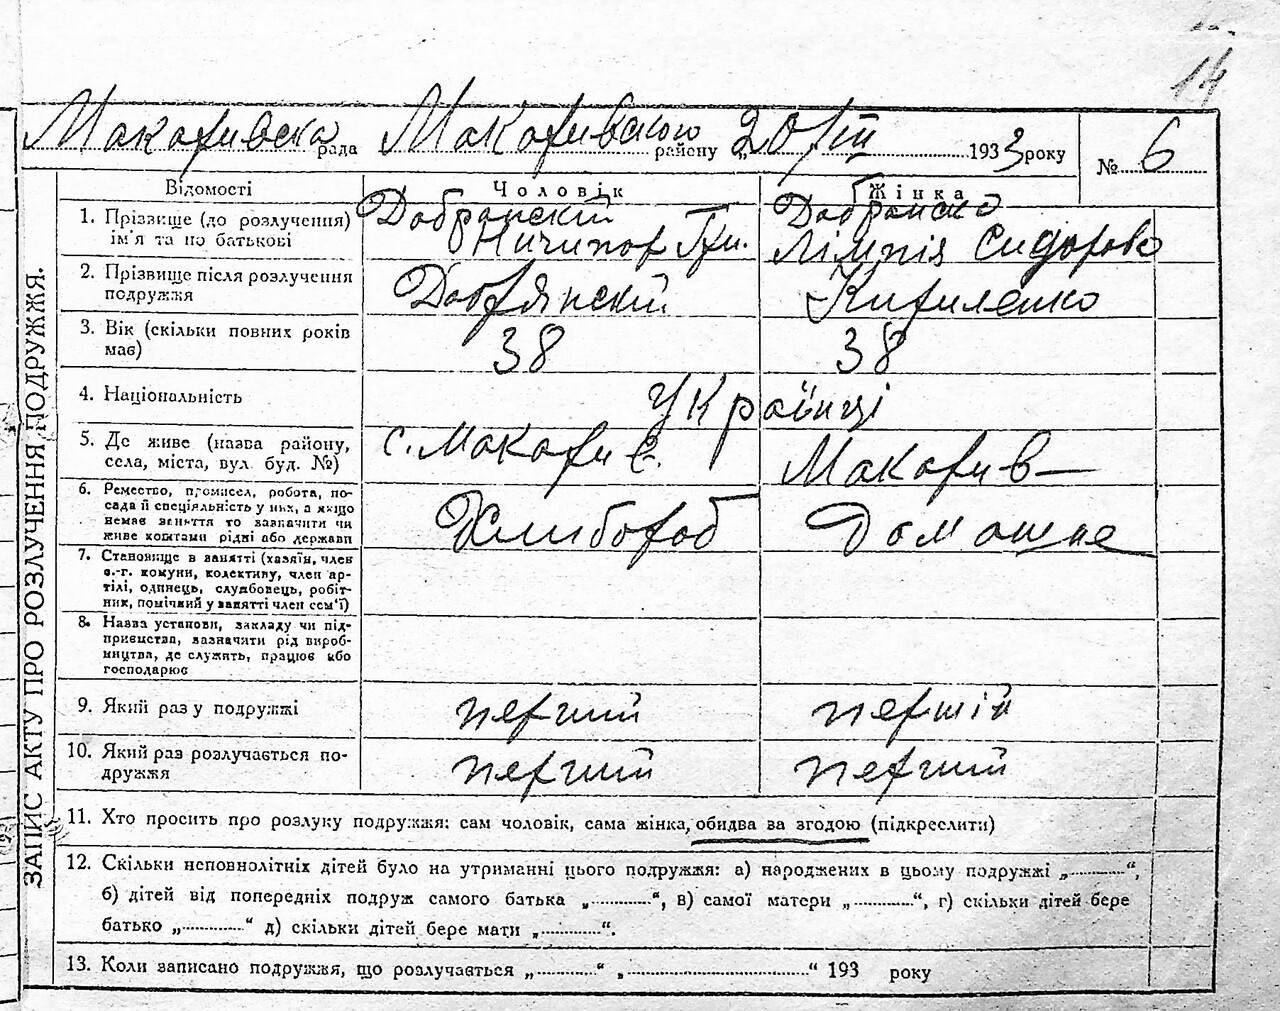 14
Макаривска рада Макаривского району „20/III 1933 року № 6
ЗАПИС АКТУ ПРО РОЗЛУЧЕННЯ ПОДРУЖЖЯ.
Відомості Чоловік Жінка
1. Прізвище (до розлучення) Добранскій Добранска
ім'я та по батькові Ничипор Гри. Лімпія Сидорово
2. Прізвище після розлучення
подружжя Добрянскій Кириленко
3. Вік (скільки повних років
має) 38 38
4. Національність Українці
5. Де живе (назва району, с. Макарив. Макарив
села, міста, вул. буд. №)
6. Ремество, промисел, робота, по-
сада й спеціяльність у них, а якщо
немає заняття то зазначити чи Хлибороб Домашне
живе коштами рідні або держави
7. Становище в занятті (хазяїн, член
с.-г. комуни, колективу, член ар-
тілі, одинець, службовець, робіт-
ник, помічний у занятті член сем'ї)
8. Назва установи, закладу чи під-
приємства, зазначити рід вироб-
ництва, де служить, працює або
господарює
9. Який раз у подружжі перший першій
10. Який раз розлучається по-
дружжя перший перший
11. Хто просить про розлуку подружжя: сам чоловік, сама жінка, обидва за згодою (підкреслити)
12. Скільки неповнолітніх дітей було на утриманні цього подружжя: а) народжених в цьому подружжі „............“,
б) дітей від попередніх подруж самого батька „............“, в) самої матери „............“, г) скільки дітей бере
батько „............“ д) скільки дітей бере мати „............“.
13. Коли записано подружжя, що розлучається „............“ „..............................“ 193 року